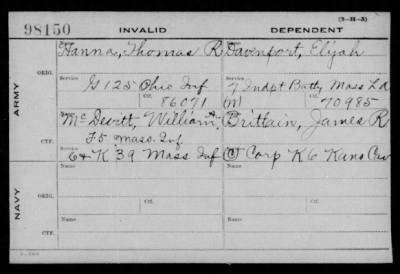 (3-H-3)
98150 INVALID DEPENDENT
Name Name
Hanna, Thomas R Davenport, Elijah
ORIG. Service Service
G 125 Ohio Inf 7 Indpt Batty Mass L A
Ctf. 86071 (M) Ctf. 70985
ARMY
McDevitt, William A, Brittain, James R
F 5 Mass. Inf.
CTF. Service Service
64 K 39 Mass Inf (C) Corp K 6 Kans Cav
Name Name
ORIG. Service Ctf. Service Ctf.
NAVY
Name Name
CTF. Service Service